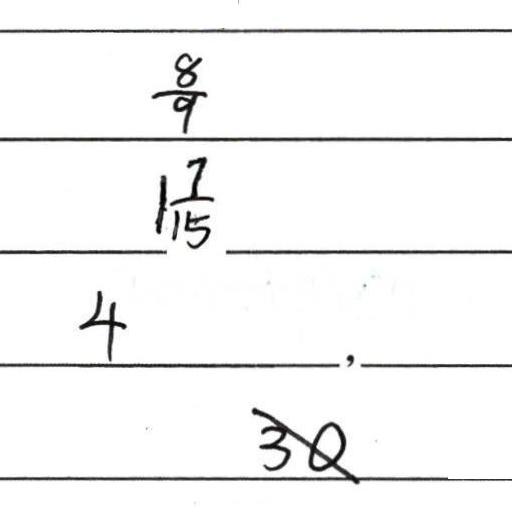 8/9
1 7/15
4 ,
30